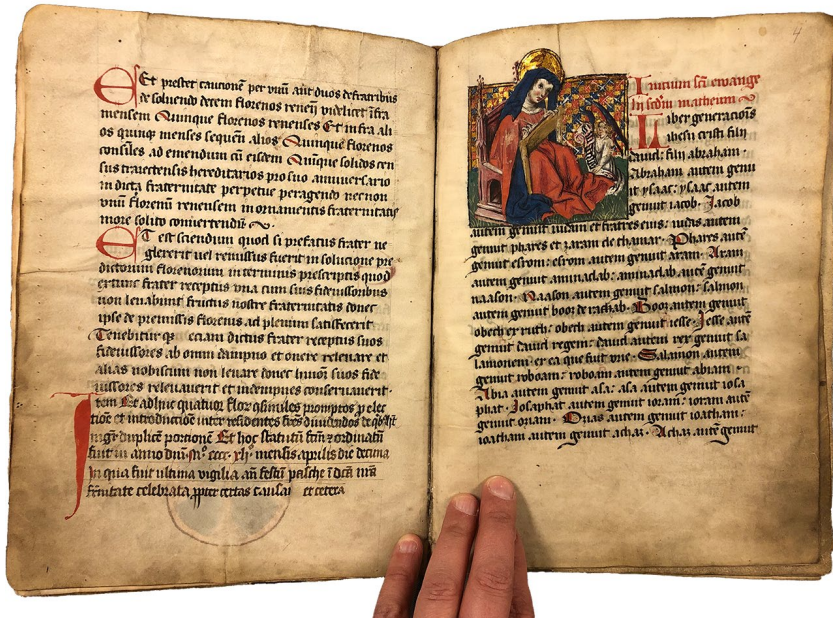 Et prestet cautionē per vnū aut duos de fratribus
de soluendo decem florenos renen̄ videlicet īfra
mensem Quinque florenos renenses Et infra ali
os quinqȝ menses sequen̄ alios Quinque florenos
consil̄es ad emendum cū eisdem Quīqȝ solidos cen
sus traiectensis hereditarios pro suo anniuersario
in dicta fraternitate perpetue peragendo necnon
vnū florenū renensem in ornamentis fraternitatis
more solito conuertendū
ET est sciendum quod si prefatus frater ne
glexerit uel remissus fuerit in solucione pre
dictorum florenorum in terminis prescriptis quod
extunc frater receptus vna cum suis fideiussoribus
non leuabunt fructus nostre fraternitatis donec
ipse de premissis florenis ad plenum satisfecerit
Tenebitur qȝ eciam dictus frater receptus suos
fideiussores ab omni dampno et onere releuare et
alias nobiscum non leuare donec huiuscemodi suos fide
iussores releuauerit et indempnes conseruauerit
Item Et adhuc quatuor flor̄ cōsimiles promptos ꝓ elec
tiōe et introductiōe inter residentes fr̄es diuidendos
mgr̄ duplicē portionē Et hoc statutū fcm̄ ⁊ ordinatū
fuit in anno dnī Mº cccc xlj mensis aprilis die decima
In qua fuit ultima vigilia an̄ festū pasche ī dicta nr̄a
fr̄nitate celebrata ꝓpter certas causas et cetera
4
Inicium sc̄i ewange
lij scd̄m matheum
Liber generacionis
ihesu cristi filij
dauid filij abraham
Abraham autem genu
it ysaac ysaac autem
genuit iacob Jacob
autem genuit iudam et fratres eius iudas autem
genuit phares et zaram de thamar Phares autē
genuit esrom esrom autem genuit aram Aram
autem genuit aminadab aminadab autē genuit
naason Naason autem genuit salmon salmon
autem genuit booz de rachab Booz autem genuit
obeth ex ruth obeth autem genuit iesse Jesse autē
genuit dauid regem dauid autem rex genuit sa
lamonem ex ea que fuit vrie Salamon autem
genuit roboam roboam autem genuit abiam
Abia autem genuit asa asa autem genuit iosa
phat Josaphat autem genuit ioram ioram autē
genuit oziam Ozias autem genuit ioatham
ioatham autem genuit achaz Achaz autē genuit